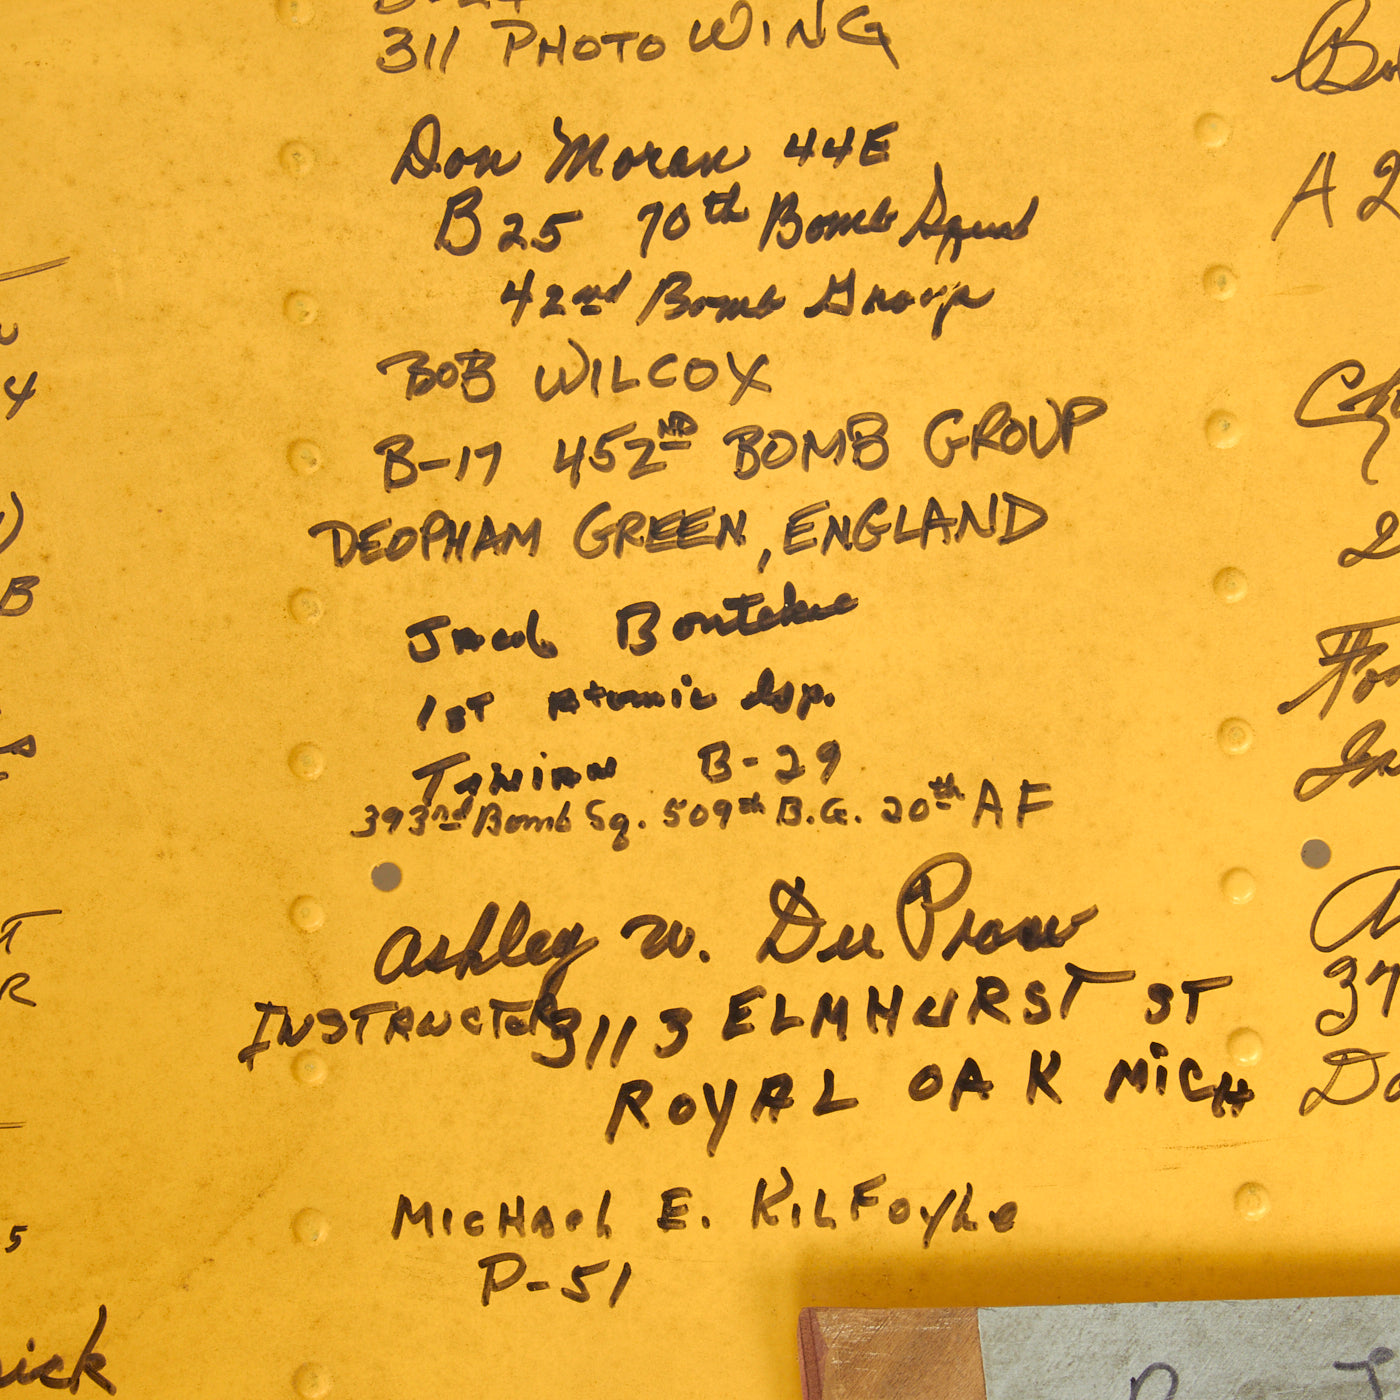 311 PHOTO WING
Don Moran 44E
B 25 70th Bomb Squad
42nd Bomb Group
BOB WILCOX
B-17 452ND BOMB GROUP
DEOPHAM GREEN, ENGLAND
Jacob
1ST Atomic Isp.
TINIAN B-29
393rd Bomb Sq. 509th B.G. 20th AF
Ashley W. Du
INSTRUCTOR 3113 ELMHURST ST
ROYAL OAK MICH
MICHAEL E. KILFOYLE
P-51
A 2
4
B
R
5
37